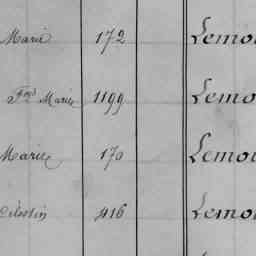 Marie 172 Lemo
Fçois Marie 1199 Lemo
Marie 170 Lemo
Célestin 416 Lemo